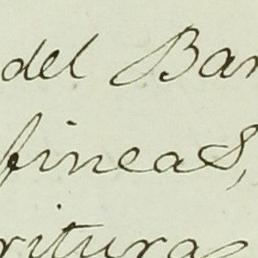 del Ban
fincas,
ritura